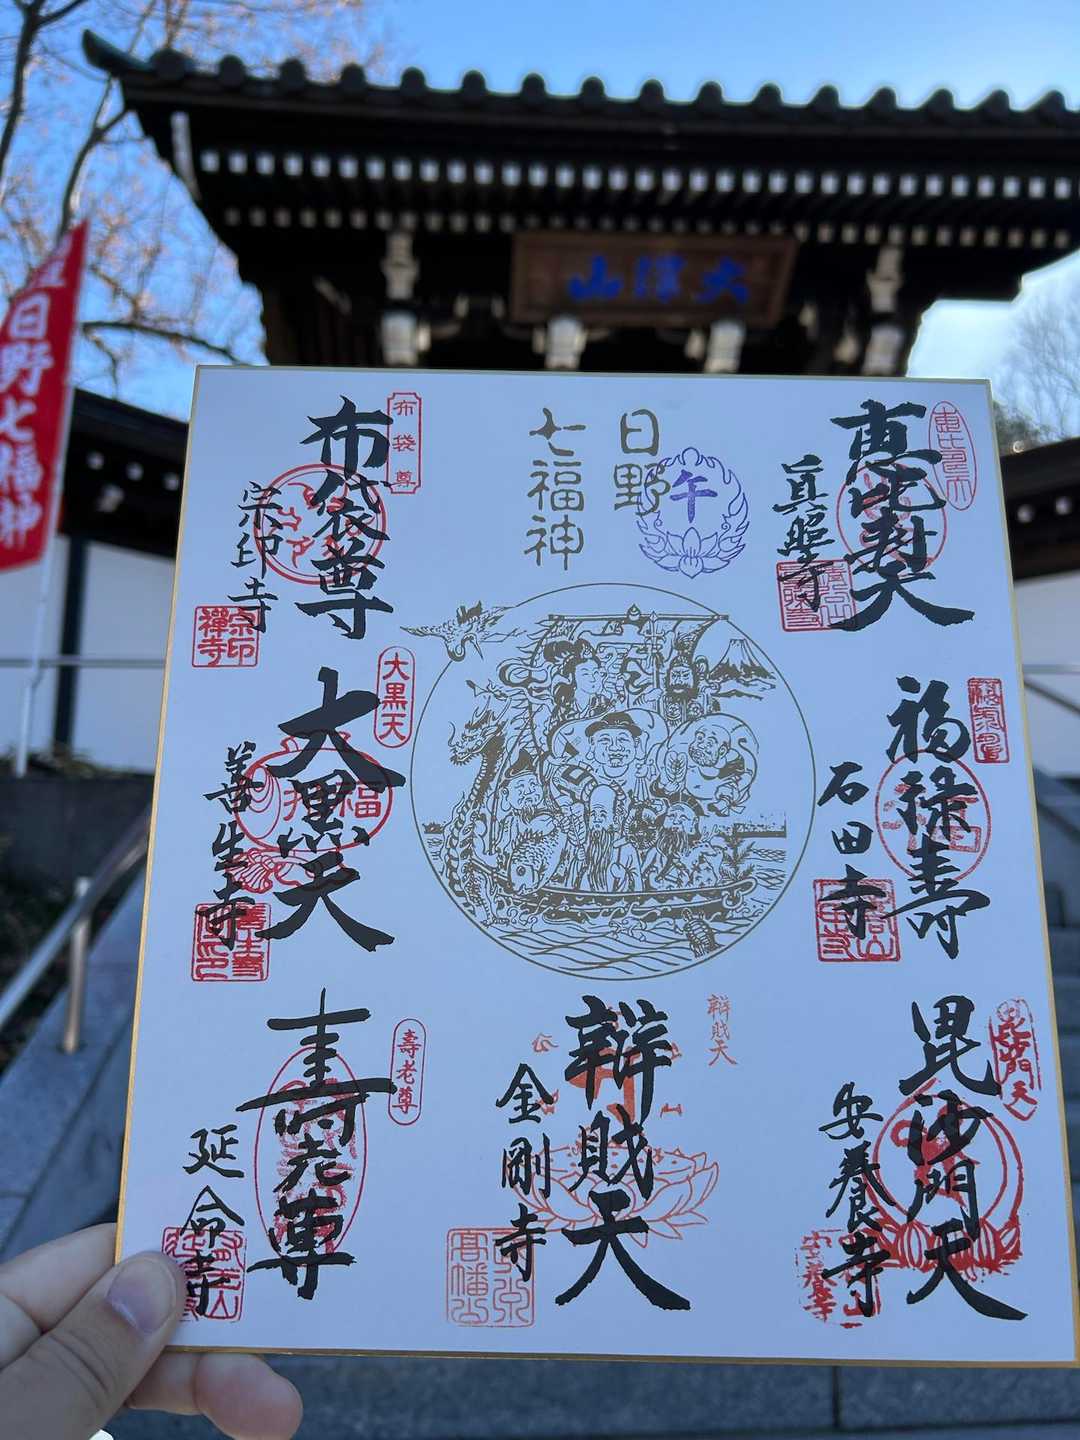 大澤山
日野七福神
日野
七福神
午
恵比寿天
恵比寿天
真照寺
福禄寿
石田寺
毘沙門天
毘沙門天
安養寺
安養寺
辯財天
辯財天
金剛寺
布袋尊
布袋尊
宗印寺
宗印禅寺
大黒天
大黒天
福
善生寺
壽老尊
壽老尊
延命寺